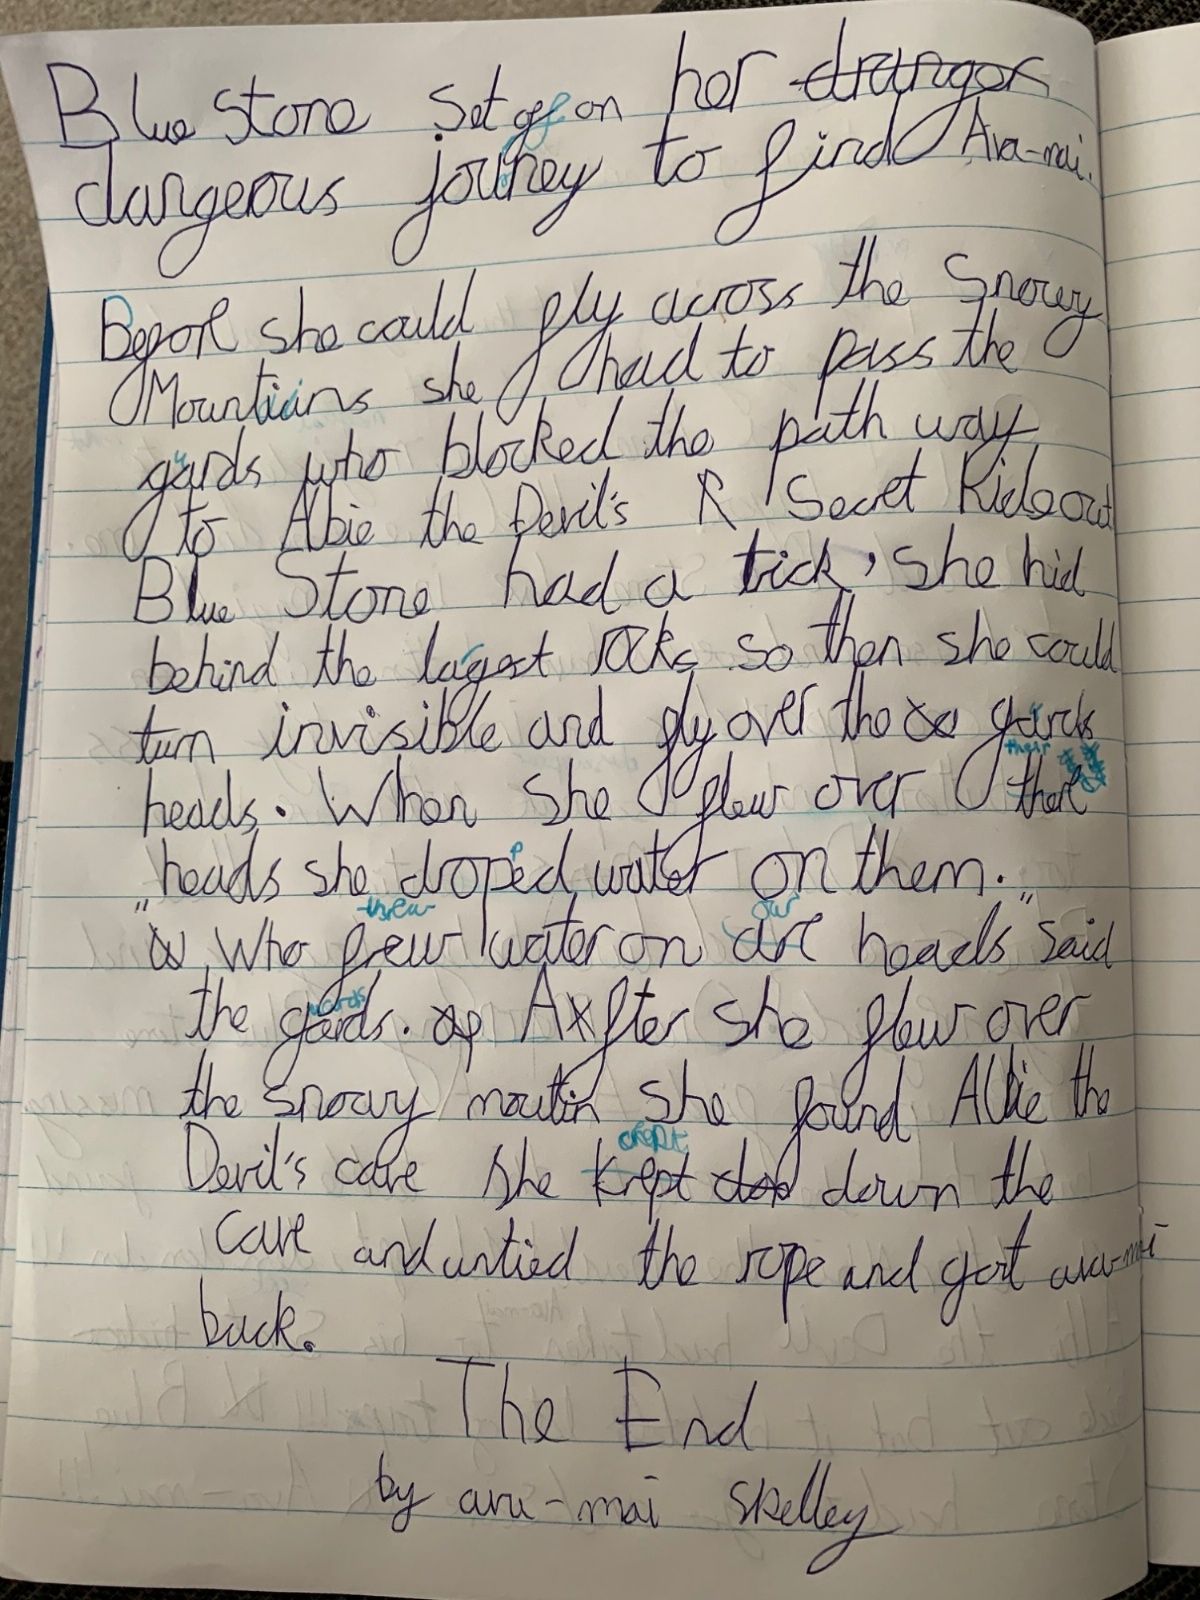 Blue Stone Set off on her dranger
dangeous journey to find Ava-mai.
Before she could fly across the Snowy
Mountiains she had to pass the
guards who blocked the path way
to Albie the Devil's R Secret Hideout
Blue Stone had a trick, she hid
behind the largest rocks so then she could
turn invisible and fly over the guards
heads. When she flew over their
heads she dropped water on them.
"Who threw frew water on our are heads" said
the guards gards. After she flew over
the snowy moutin she found Albie the
Devil's cave she crept krept down the
cave and untied the rope and gort ava-mai
back.
The End
by ava-mai skelley